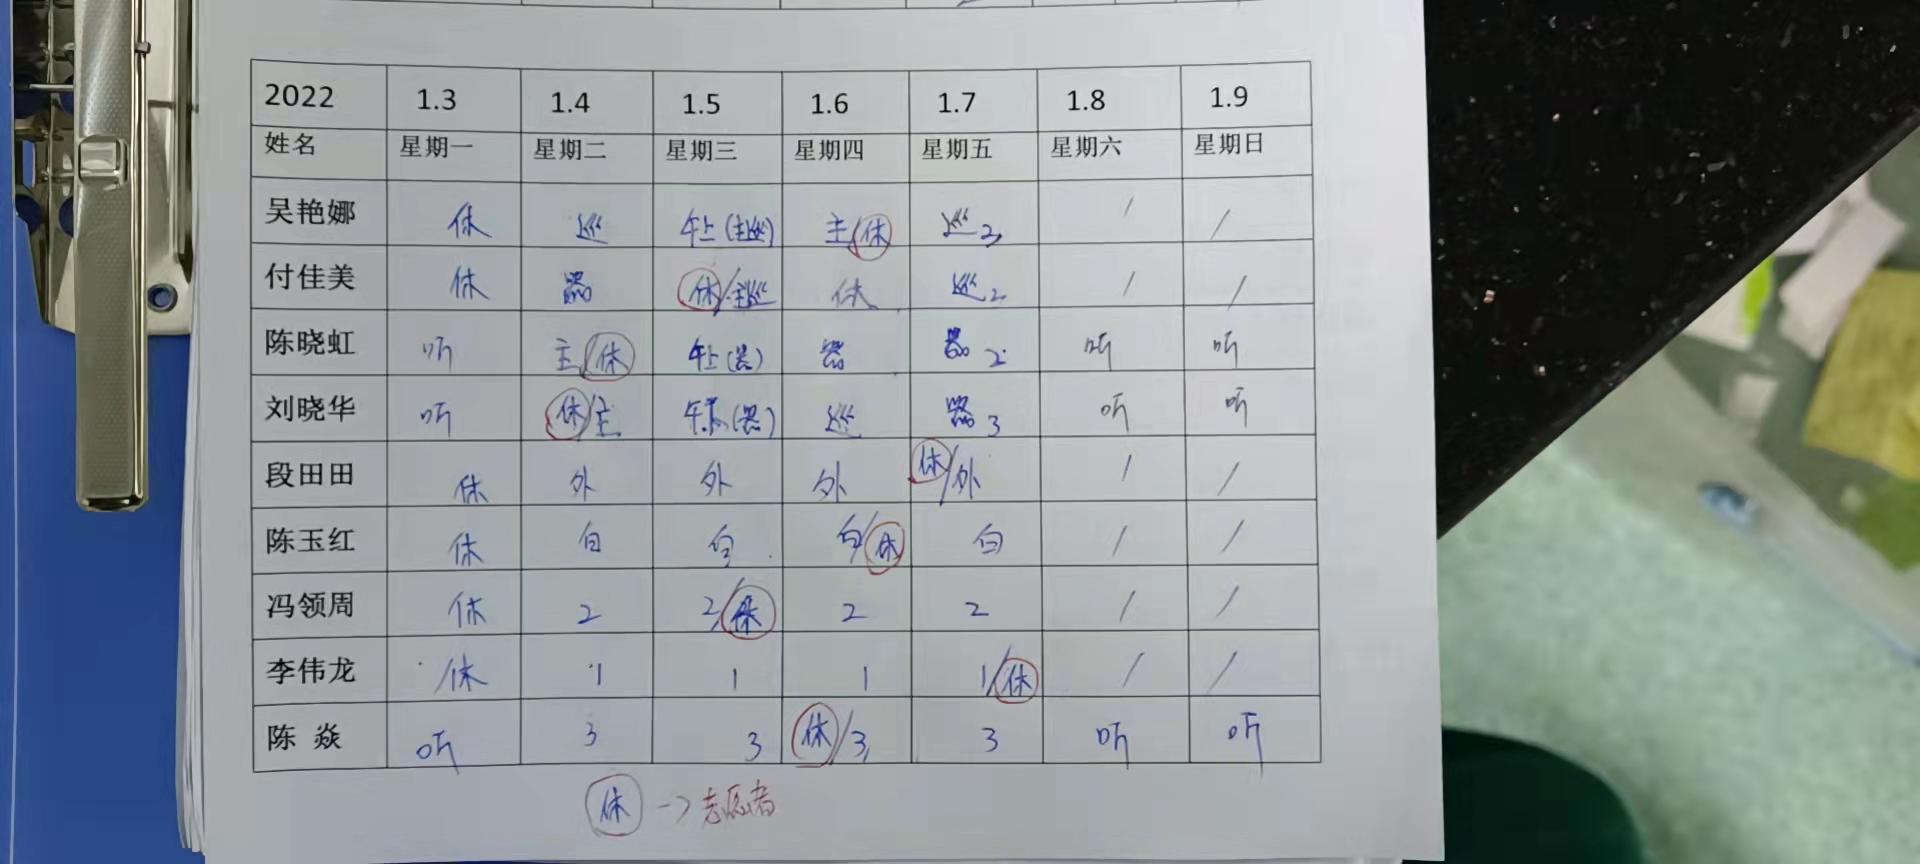 2022 1.3 1.4 1.5 1.6 1.7 1.8 1.9
姓名 星期一 星期二 星期三 星期四 星期五 星期六 星期日
吴艳娜 休 巡 (主巡) 主/休 巡3 / /
付佳美 休 器 休/主巡 休 巡2 / /
陈晓虹 听 主/休 (器) 器 器2 听 听
刘晓华 听 休/主 (器) 巡 器3 听 听
段田田 休 外 外 外 休/外 / /
陈玉红 休 白 白 白/休 白 / /
冯领周 休 2 2/休 2 2 / /
李伟龙 /休 1 1 1 1/休 / /
陈 焱 听 3 3 休/3 3 听 听
休 -> 志愿者